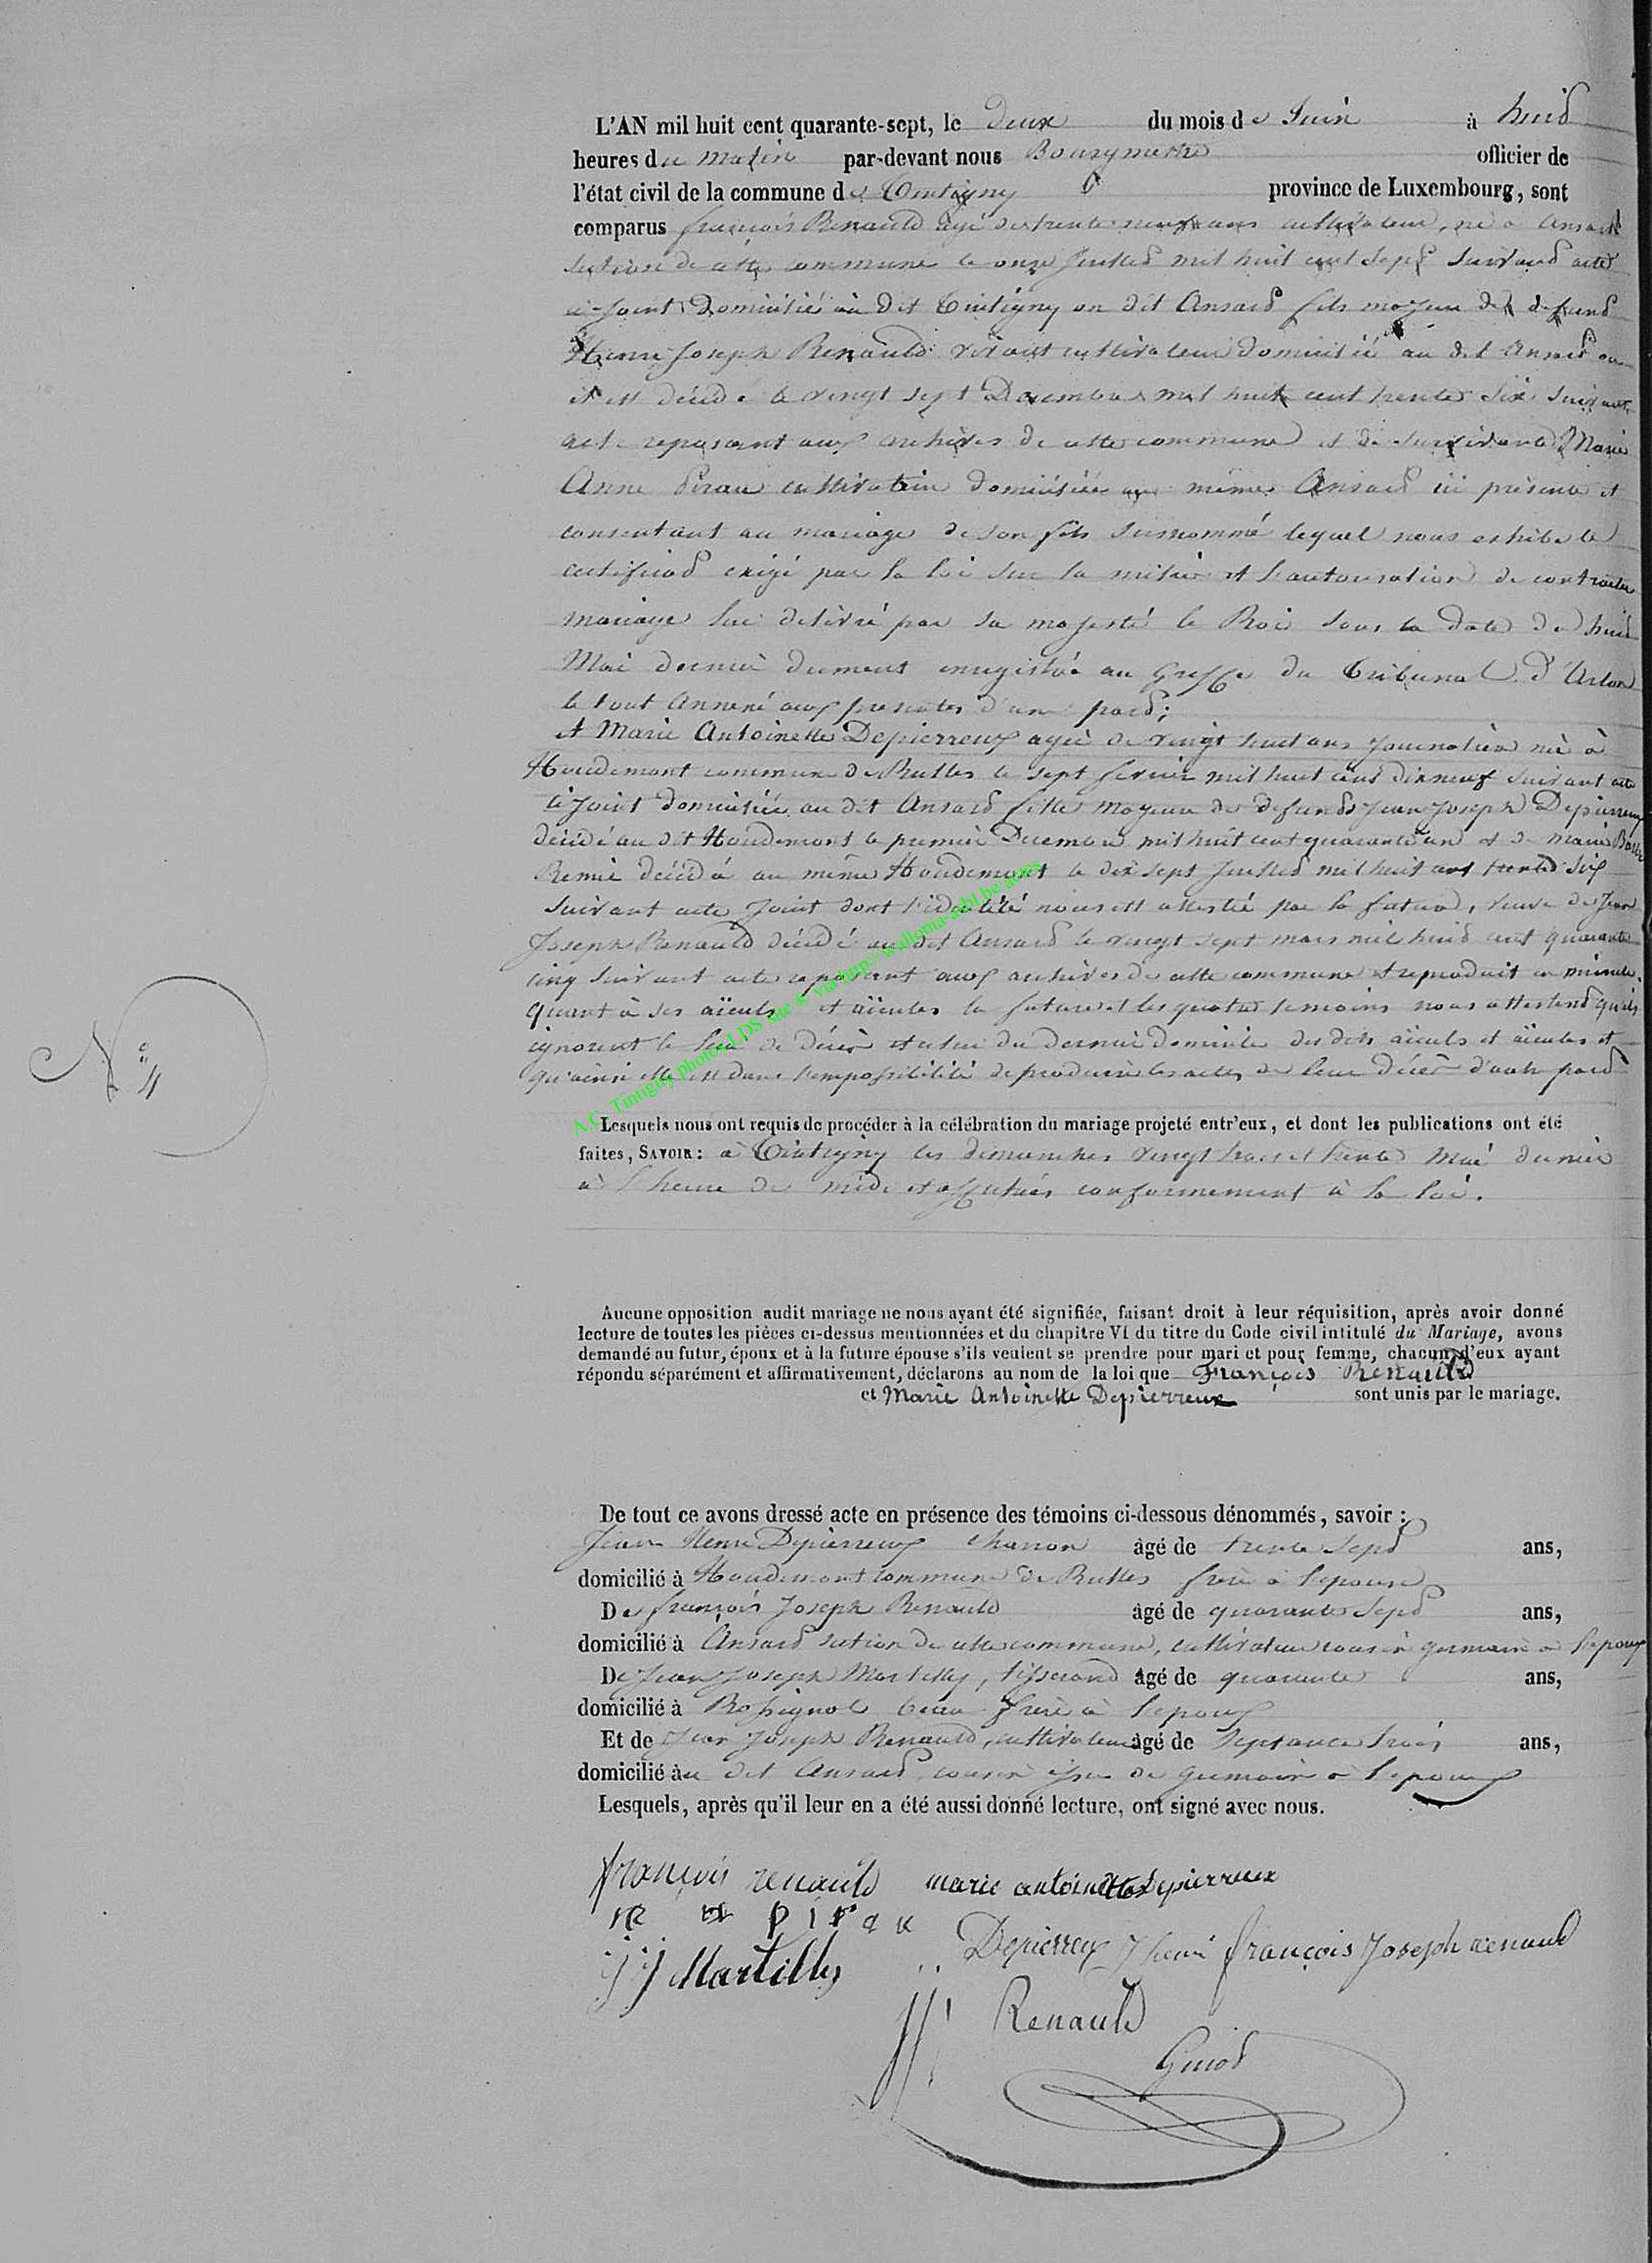 L'AN mil huit cent quarante-sept, le deux du mois de Juin à huit
heures du matin par-devant nous Bourgmestre officier de
l'état civil de la commune de Tintigny province de Luxembourg, sont
comparus françois Renauld agé de trente neuf ans cultivateur, né à Ansart
section de cette commune le onze Juillet mil huit cent sept suivant acte
ci-Joint Domicilié au dit Tintigny au dit Ansart fils majeur de defunt
Henri Joseph Renauld vivant cultivateur domicilié au dit Ansart ou
il est décédé le vingt sept Decembre mil huit cent trente six suivant
acte reposant aux archives de cette commune et de survivante Marie
Anne Pirau cultivatrice domiciliée au même Ansart ici présente et
consentant au mariage de son fils surnommé lequel nous exhibe le
certificat exigé par la loi sur la milice et l'autorisation de contracter
mariage lui délivré par sa majesté le Roi sous la date de huit
Mai dernier dument enregistrée au Greffe du Tribunal d'Arlon
le tout annexé aux presentes d'une part;
et Marie Antoinette Depierreux agée de vingt huit ans Journalière née à
Houdemont commune de Rulles le sept fevrier mil huit cent dix neuf suivant acte
ci Joint domiciliée au dit Ansart fille majeure de defunts Jean Joseph Depierreux
décédé au dit Houdemont le premier Decembre mil huit cent quarante un et de Marie
Remie décédé au même Houdemont le dix sept Juillet mil huit cent trente six
suivant acte Joint dont l'identité nous est attestée par la future, veuve de Jean
Joseph Renauld décédé au dit Ansart le vingt sept mars mil huit cent quarante
cinq suivant acte reposant aux archives de cette commune et reproduit en minute.
quant à ses aïeuls et aïeules la future et les quatre temoins nous attestent qu'ils
ignorent le lieu de décès et celui du dernier domicile des dits aïeuls et aïeules et
qu'ainsi elle est dans l'impossibilité de produire les actes de leur décès d'autre part
A.C. Tintigny photos LDS via http://wallonia-asbl.be/actes
N° 4
Lesquels nous ont requis de procéder à la célébration du mariage projeté entr'eux, et dont les publications ont été
faites, SAVOIR: à Tintigny les dimanches vingt trois et trente Mai dernier
à l'heure de midi et affichées conformement à la loi.
Aucune opposition audit mariage ne nous ayant été signifiée, faisant droit à leur réquisition, après avoir donné
lecture de toutes les pièces ci-dessus mentionnées et du chapitre VI du titre du Code civil intitulé du Mariage, avons
demandé au futur, époux et à la future épouse s'ils veulent se prendre pour mari et pour femme, chacun d'eux ayant
répondu séparément et affirmativement, déclarons au nom de la loi que François Renauld
et Marie Antoinette Depierreux sont unis par le mariage.
De tout ce avons dressé acte en présence des témoins ci-dessous dénommés, savoir:
Jean Henri Depierreux charron âgé de trente sept ans,
domicilié à Houdemont commune de Rulles frère à l'epouse
De françois Joseph Renauld âgé de quarante sept ans,
domicilié à Ansart section de cette commune, cultivateur cousin germain à l'epoux
De Jean Joseph Martilly, tisserand âgé de quarante ans,
domicilié à Rossignol beau frère à l'epoux
Et de Jean Joseph Renauld, cultivateur âgé de septante trois ans,
domicilié au dit Ansart, cousin issu de germain à l'epoux
Lesquels, après qu'il leur en a été aussi donné lecture, ont signé avec nous.
françois renauld marie antoinette depierreux
pirau
Depierreux J henri françois Joseph renauld
JJ Martilly
JJ Renauld
Guiot